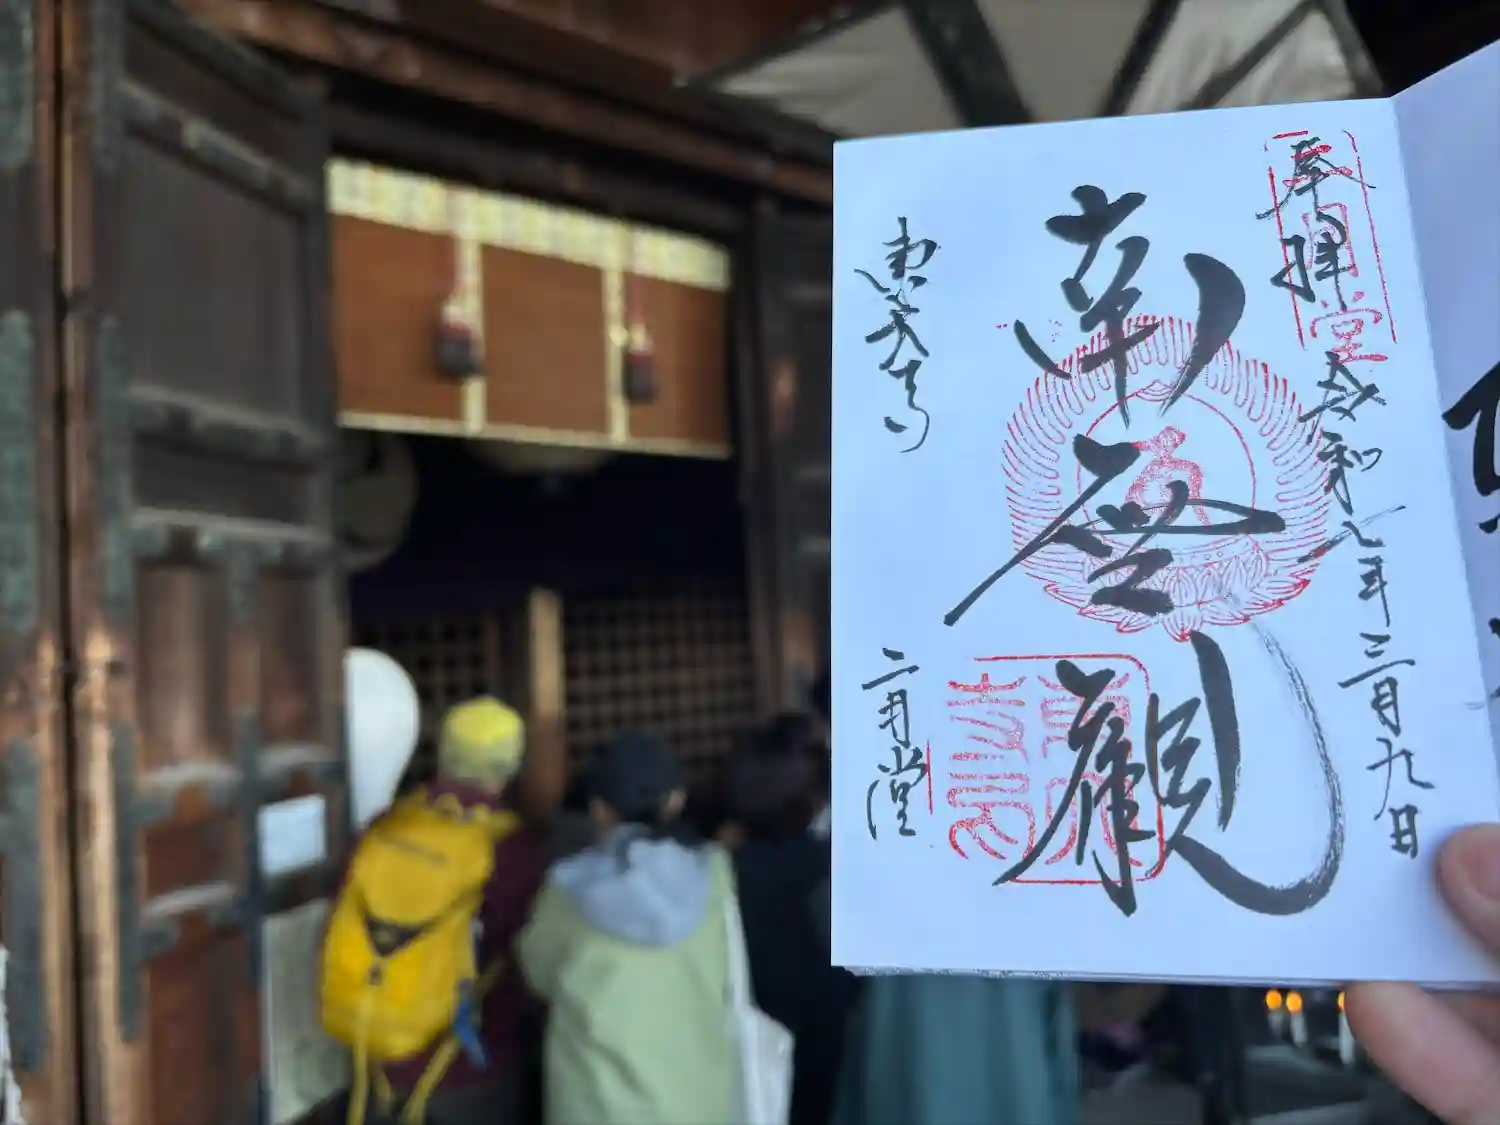 奉拝 令和七年三月九日
二月堂
南無観
東大寺
二月堂